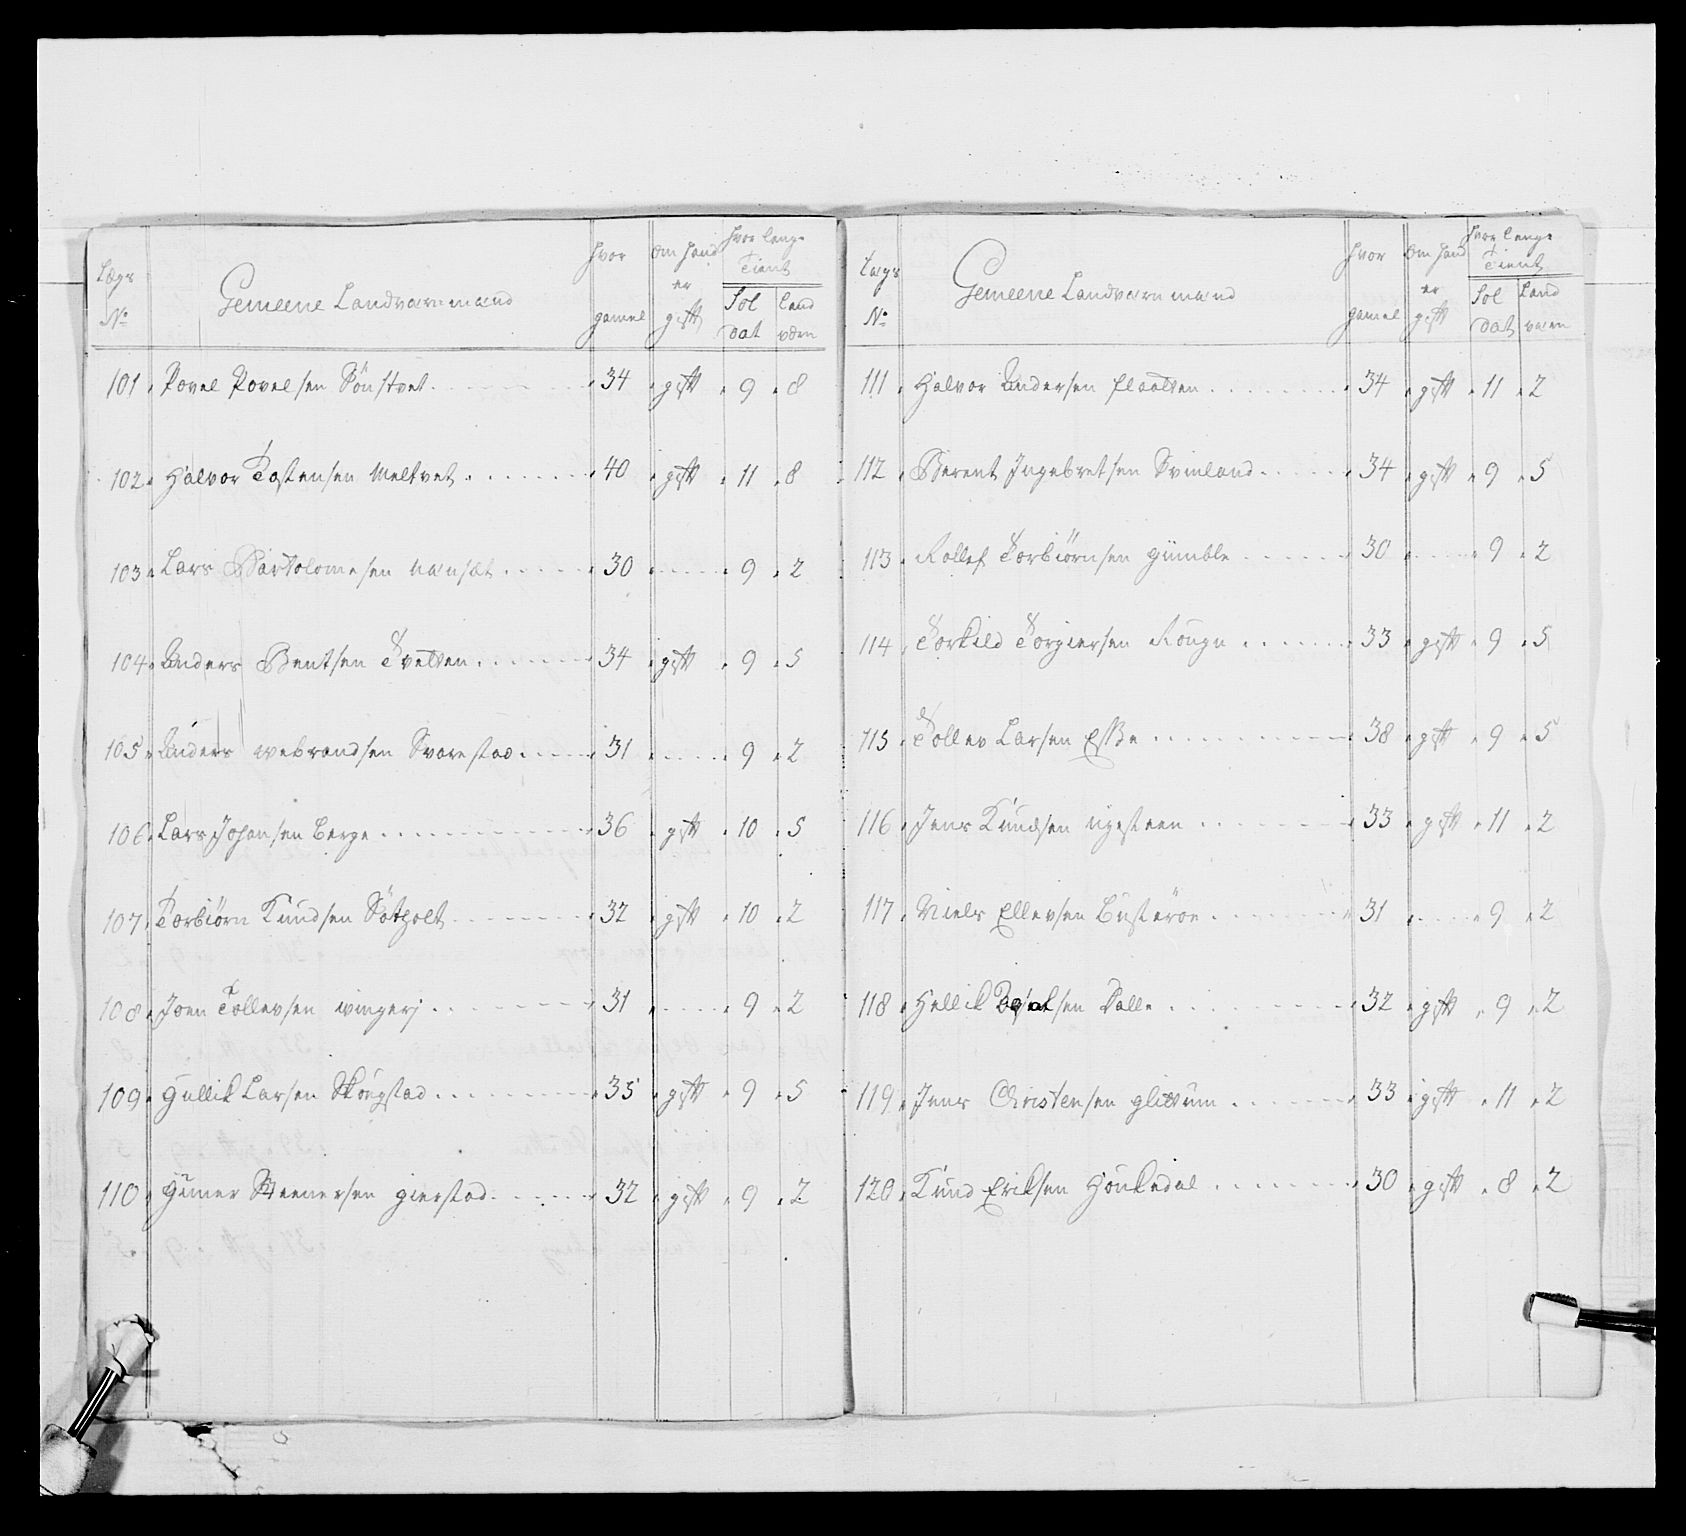 Lægs No
Gemeene Landværnmænd
hvor gamel
om hand er gift
hvor lenge Tient
Sol dat
Land værn
101 Povel Povelsen Sönstvet 34 gift 9 8
102 Halvor Tostensen Meltvet 40 gift 11 8
103 Lars Bartolomesen Nansæt 30 9 2
104 Anders Bentsen Tvetten 34 gift 9 5
105 Anders webrandsen Svarestad 31 9 2
106 Lars Johansen Berge 36 gift 10 5
107 Torbiörn Knudsen Sötholt 32 gift 10 2
108 Joen Tollevsen wingerj 31 9 2
109 Gullik Larsen Skougstad 35 gift 9 5
110 Gunner Steenersen gierstad 32 gift 9 2
Lægs No
Gemeene Landværnmænd
hvor gamel
om hand er gift
hvor lenge Tient
Sol dat
Land værn
111 Halvor Andersen flaatten 34 gift 11 2
112 Berent Ingebretsen Svinland 34 gift 9 5
113 Rollef Torbiörnsen gumble 30 9 2
114 Torkild Torgiersen Rougn 33 gift 9 5
115 Tollev Larsen 38 gift 9 5
116 Jens Knudsen 33 gift 11 2
117 Niels Ellevsen Busteröe 31 9 2
118 Hellik Dalle 32 gift 9 2
119 Jens Christensen glittum 33 gift 11 2
120 Knud Eriksen Houkedal 30 gift 8 2